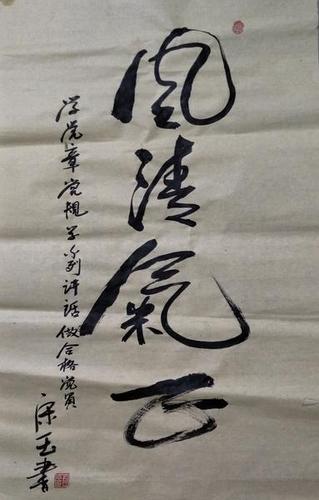 風清氣正
学党章党规学系列讲话做合格党员
宋玉書